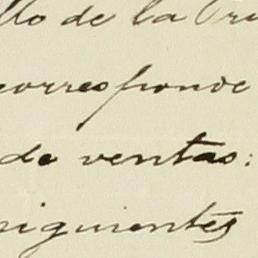 llo de la Tri
corresponde
de ventas:
siguientes